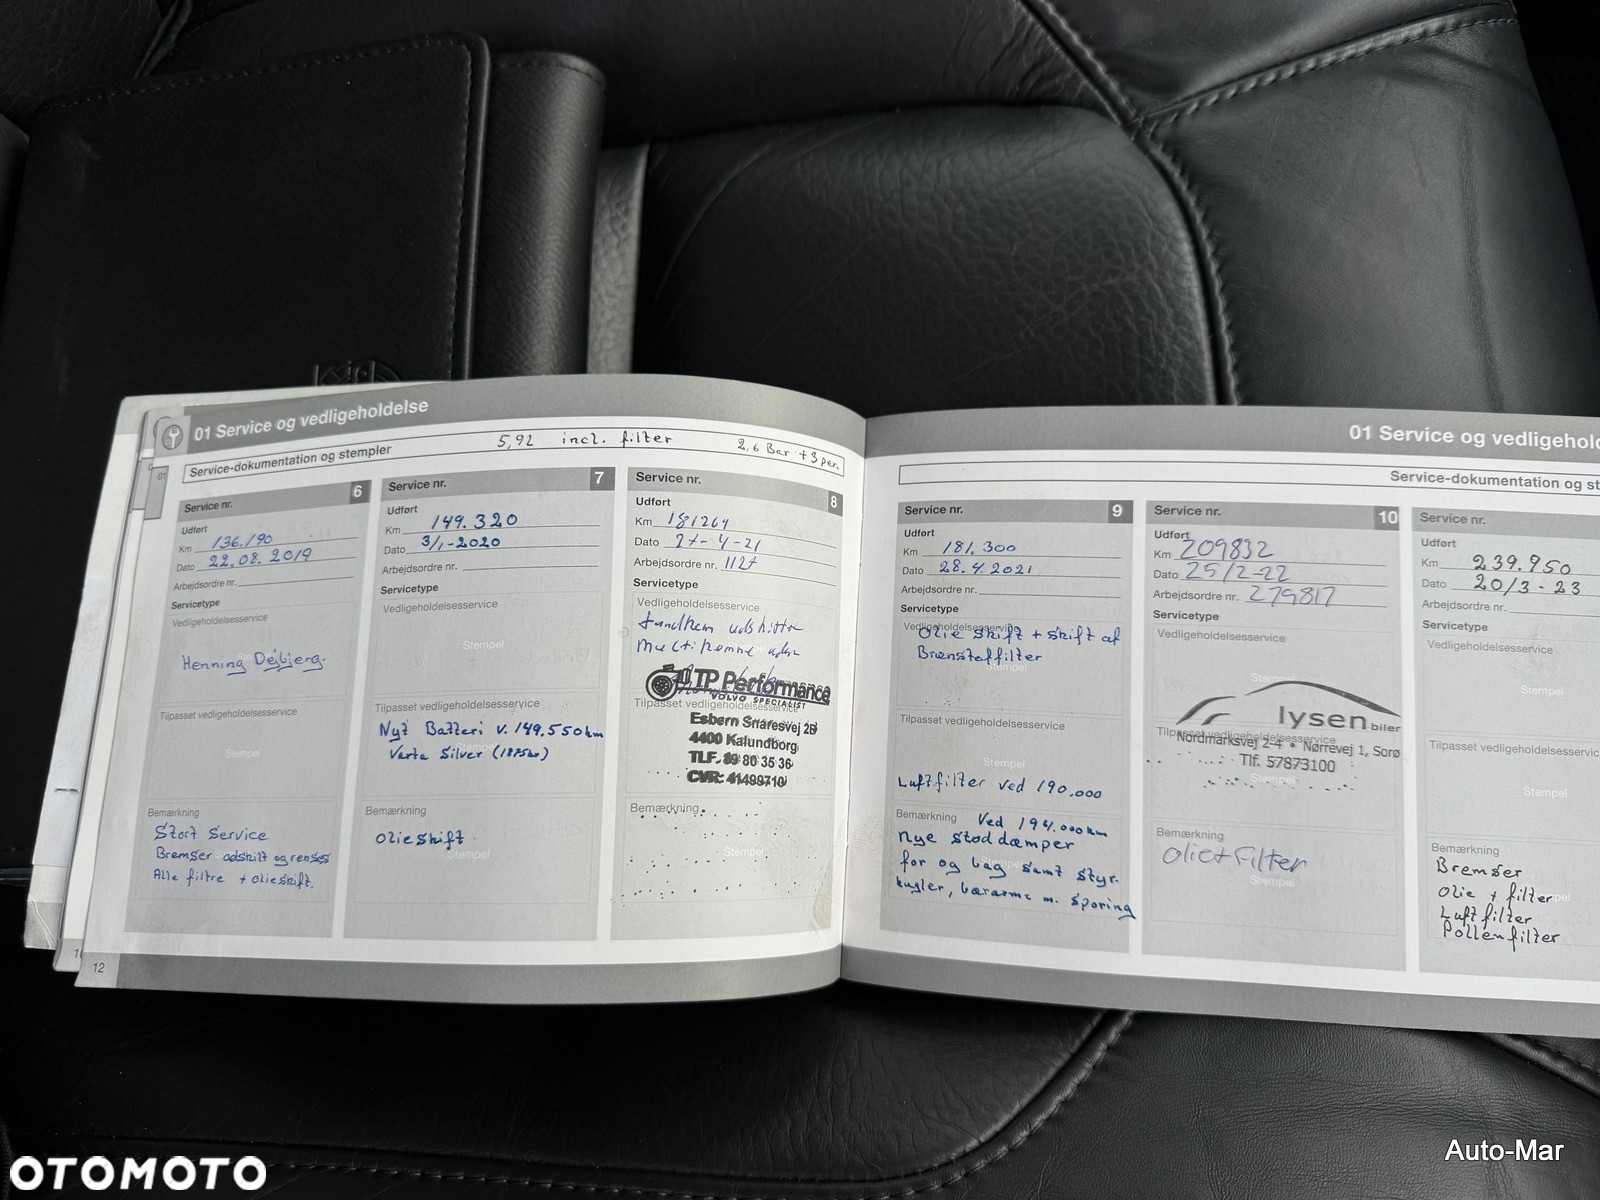 01 Service og vedligeholdelse
Service-dokumentation og stempler
5,92 incl. filter
2.6 Bar +3 per.
01
Service nr. 6
Udført
Km 136.190
Dato 22.08.2019
Arbejdsordre nr.
Servicetype
Vedligeholdelsesservice
Henning Dejbjerg.
Tilpasset vedligeholdelsesservice
Stempel
Bemærkning
Stort Service
Bremser adskilt og renses
Alle filtre + olieskift.
Service nr. 7
Udført
Km 149.320
Dato 3/1-2020
Arbejdsordre nr.
Servicetype
Vedligeholdelsesservice
Stempel
Tilpasset vedligeholdelsesservice
Nyt Batteri v. 149.550km
Varta Silver
Bemærkning
Olieskift
Stempel
Service nr. 8
Udført
Km 181264
Dato 27-4-21
Arbejdsordre nr. 1127
Servicetype
Vedligeholdelsesservice
TP Performance
VOLVO SPECIALIST
Tilpasset vedligeholdelsesservice
Esbern Snaresvej 2B
4400 Kalundborg
TLF. 89 80 35 36
CVR: 41499710
Bemærkning
Stempel
12
01 Service og vedligehol
Service-dokumentation og st
Service nr. 9
Udført
Km 181.300
Dato 28.4.2021
Arbejdsordre nr.
Servicetype
Vedligeholdelsesservice
Olie skift + skift af
Brænstoffilter
Stempel
Tilpasset vedligeholdelsesservice
Stempel
Luftfilter ved 190.000
Bemærkning Ved 194.000km
Nye støddæmper
for og bag samt styr-
kugler, bærarme m. sporing
Service nr. 10
Udført
Km 209832
Dato 25/2-22
Arbejdsordre nr. 279817
Servicetype
Vedligeholdelsesservice
Stempel
lysen biler
Tilpasset vedligeholdelsesservice
Nordmarksvej 2-4 • Nørrevej 1, Sorø
Tlf. 57873100
Stempel
Bemærkning
Olie+Filter
Stempel
Service nr.
Udført
Km 239.950
Dato 20/3-23
Arbejdsordre nr.
Servicetype
Vedligeholdelsesservice
Stempel
Tilpasset vedligeholdelsesservic
Stempel
Bemærkning
Bremser
Olie + filter
Luftfilter
Pollenfilter
OTOMOTO
Auto-Mar